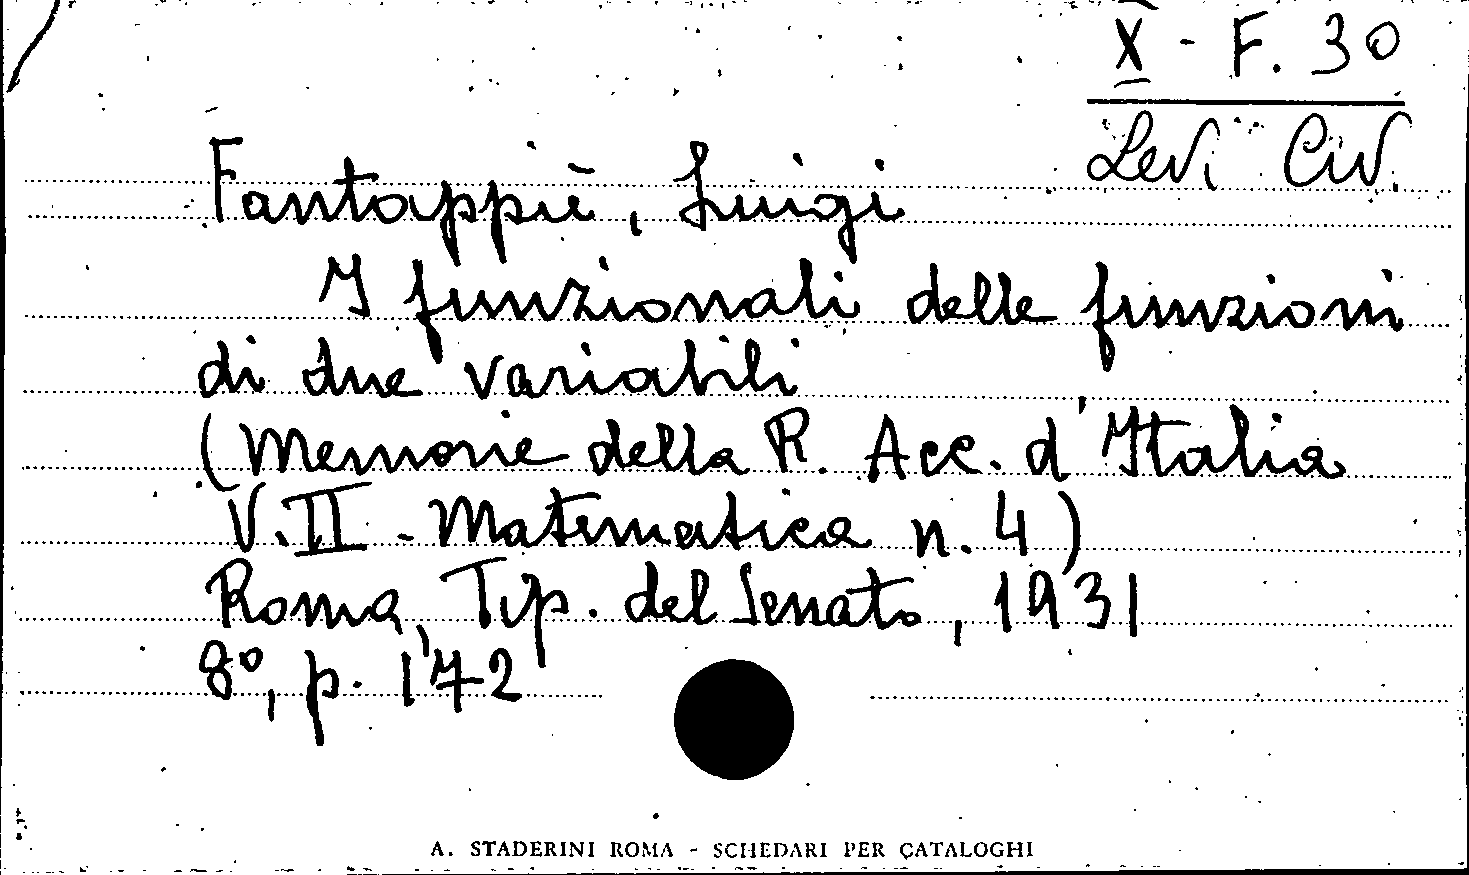 X - F. 30
Levi Civ.
Fantappiè, Luigi
I funzionali delle funzioni
di due variabili
(Memorie della R. Acc. d'Italia
V. II - Matematica n. 4)
Roma, Tip. del Senato, 1931
8°, p. 172
A. STADERINI ROMA - SCHEDARI PER CATALOGHI